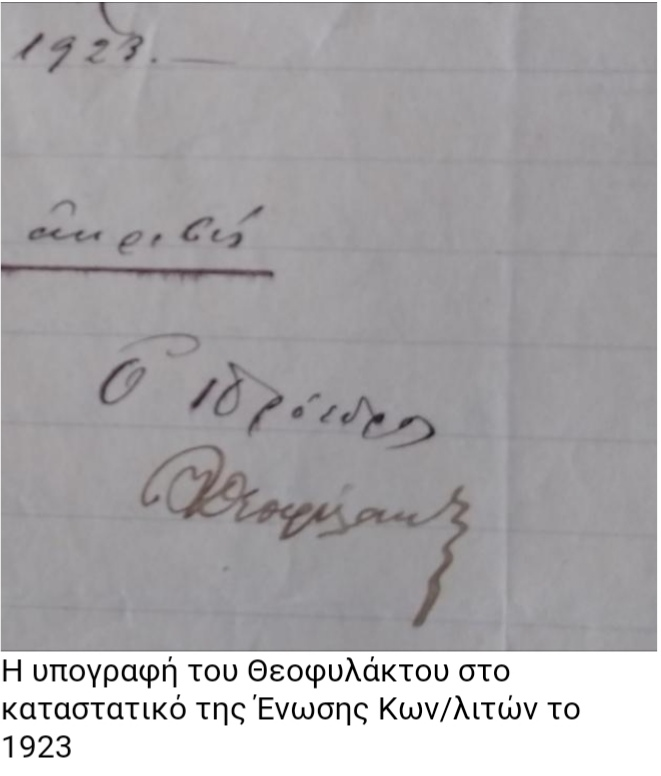 1923.
ἀκριβές
Ὁ Πρόεδρος
Θεοφύλακτ
Η υπογραφή του Θεοφυλάκτου στο
καταστατικό της Ένωσης Κων/λιτών το
1923